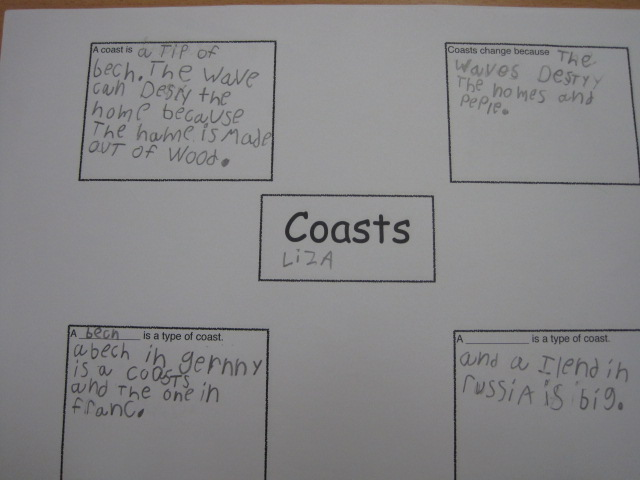 A coast is a TiP of
bech. The wave
can Destiy the
home because
The hame is Made
OUT OF Wood.
Coasts change because The
waves Destyy
The homes and
PePle.
Coasts
LiZA
A bech is a type of coast.
a bech in gernny
is a coasts
and The one in
franc.
A ________ is a type of coast.
and a Ilend in
russiA is big.